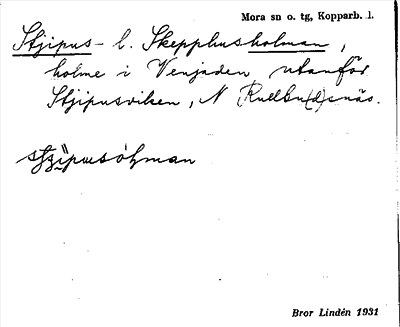 Mora sn o. tg, Kopparb. l.
Stjipus- l. Skepphusholman,
holme i Venjaden utanför
Stjipusviken, N Rullbu(d)snäs.
Bror Lindén 1931